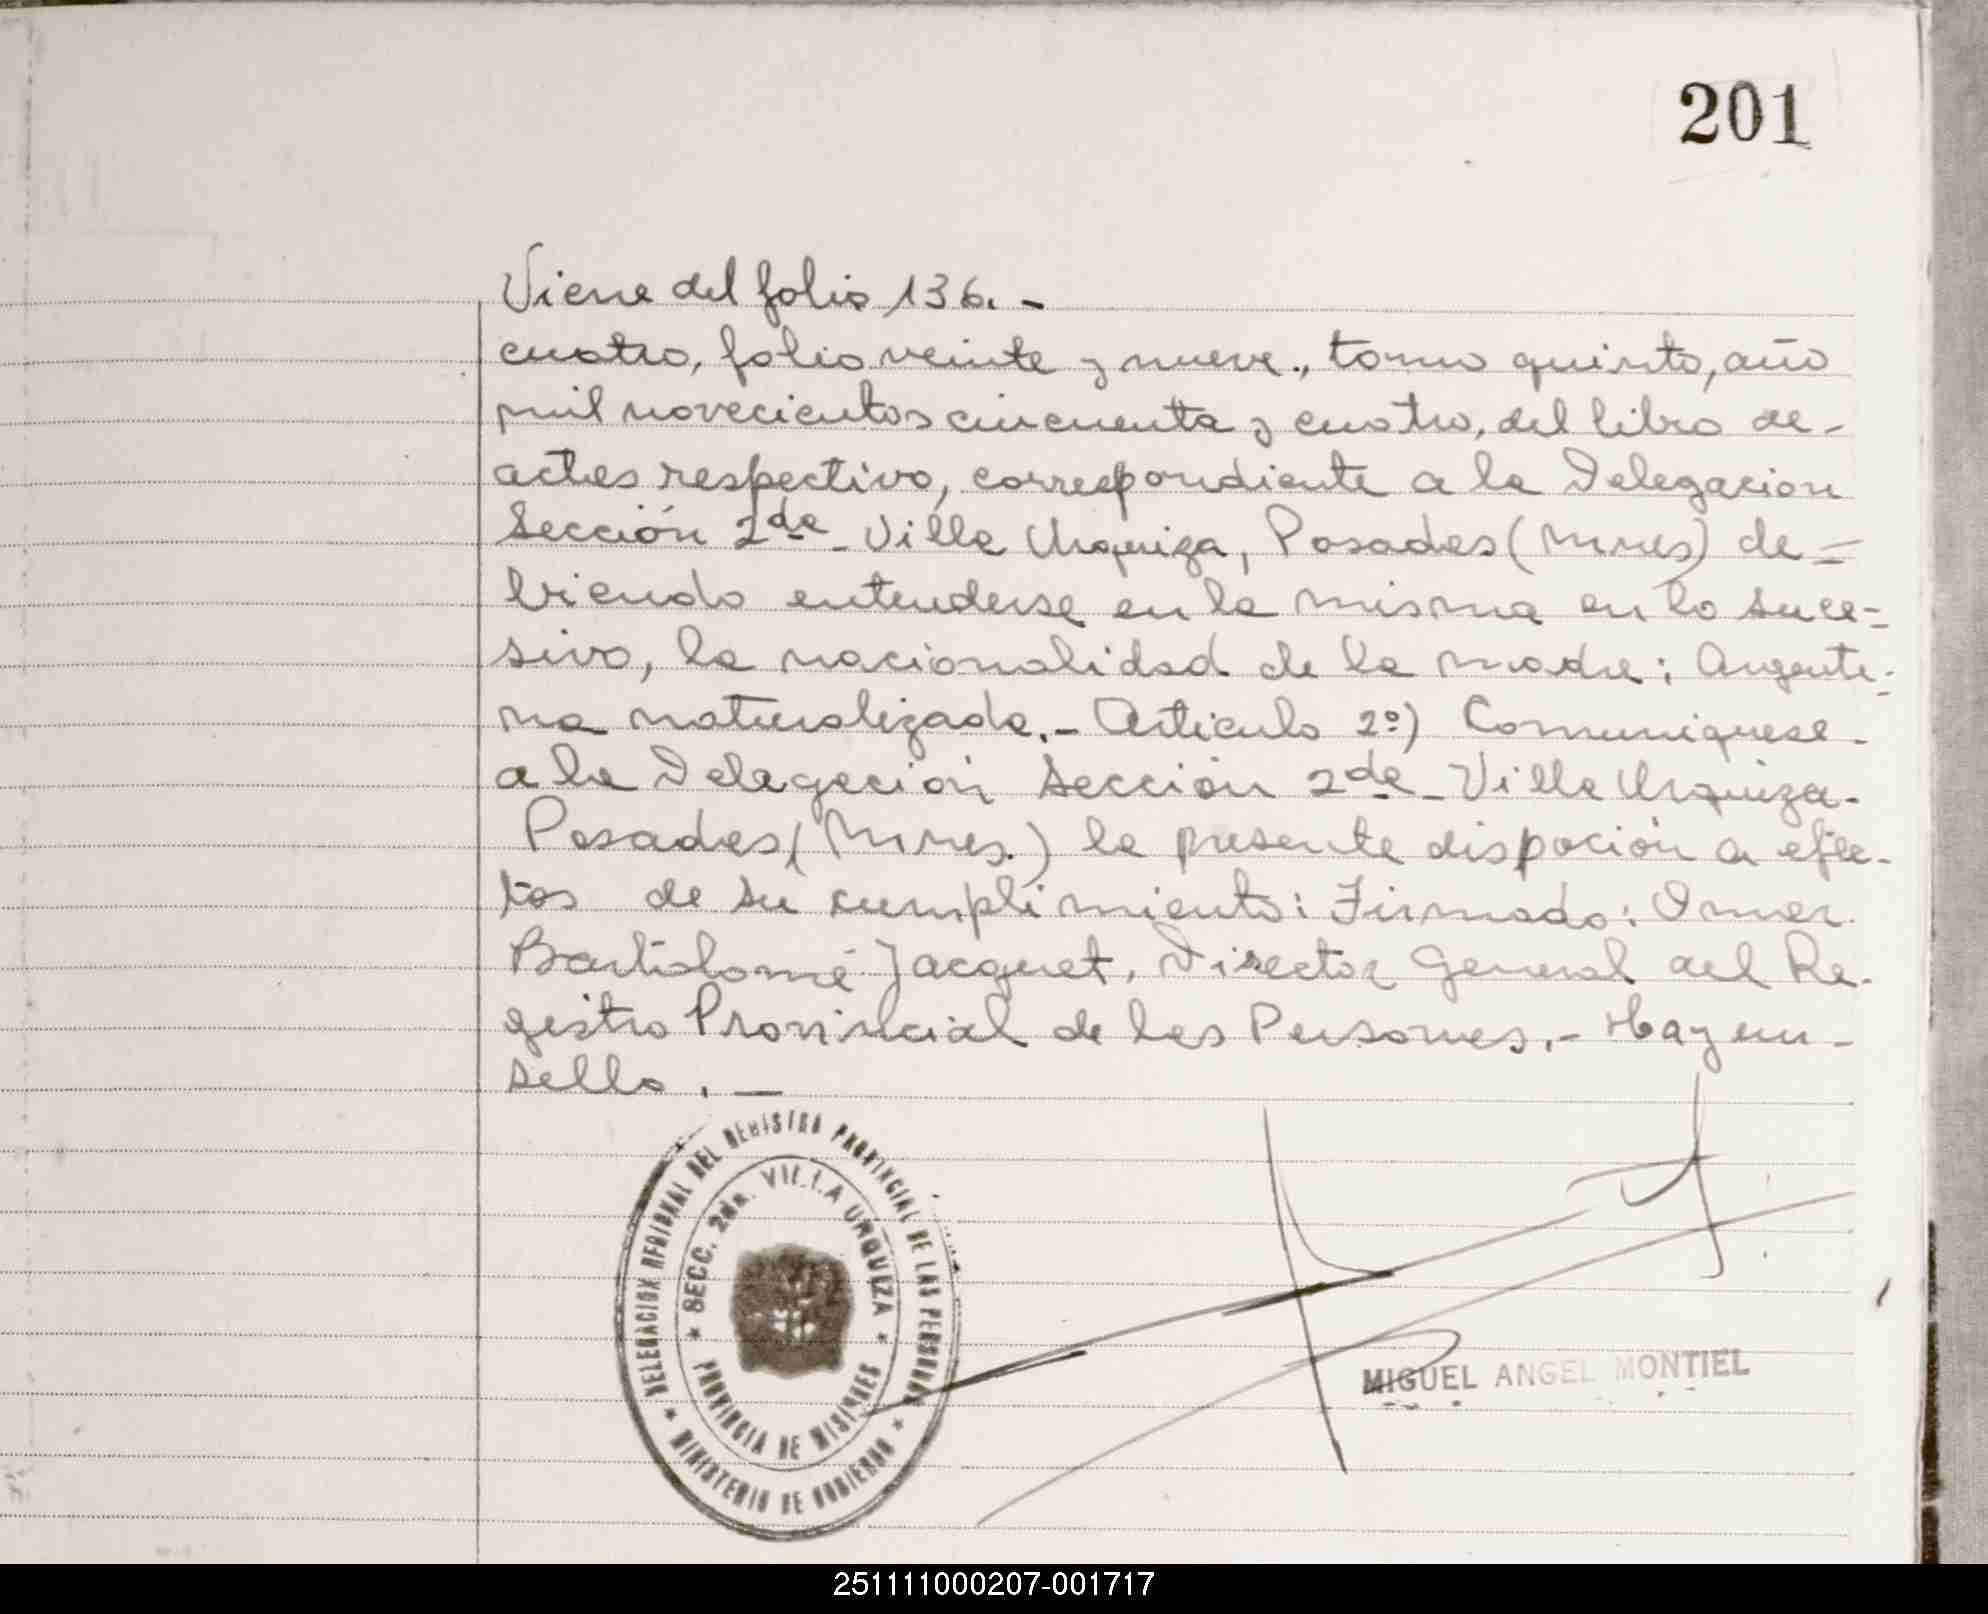 201
Viene del folio 136. -
cuatro, folio veinte y nueve., tomo quinto, año
mil novecientos cincuenta y cuatro, del libro de-
actas respectivo, correspondiente a la Delegacion
Sección 2da - Villa Urquiza, Posadas (Mnes) de=
biendo entenderse en la misma en lo suce-
sivo, la nacionalidad de la madre: Argenti-
na naturalizada.- Articulo 2º) Comuniquese -
a la Delegación Sección 2da - Villa Urquiza-
Posadas (Mnes.) la presente dispoción a efec-
tos de su cumplimiento: Firmado: Omar
Bartolomé Jacquet, Director General del Re-
gistro Provincial de las Personas.- Hay un -
sello. —
DELEGACION REGIONAL DEL REGISTRO PROVINCIAL DE LAS PERSONAS
* MINISTERIO DE GOBIERNO *
* SECC. 2da. VILLA URQUIZA *
PROVINCIA DE MISIONES
MIGUEL ANGEL MONTIEL
251111000207-001717